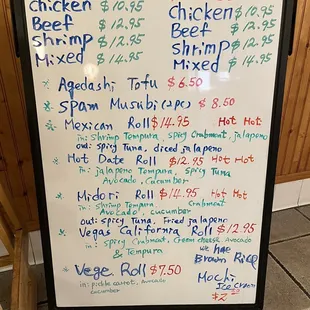 Chicken $10.95
Beef $12.95
Shrimp $12.95
Mixed $14.95
Chicken $10.95
Beef $12.95
Shrimp $12.95
Mixed $14.95
Agedashi Tofu $6.50
Spam Musubi (2pc) $8.50
Mexican Roll $14.95 Hot Hot
in: Shrimp Tempura, Spicy Crabmeat, jalapeno
out: spicy Tuna, diced jalapeno
Hot Date Roll $12.95 Hot Hot
in: jalapeno Tempura, Spicy Tuna
Avocado, Cucumber
Midori Roll $14.95 Hot Hot
in: Shrimp Tempura, Crabmeat
Avocado, cucumber
out: spicy Tuna, Fried jalapeno
Vegas California Roll $12.95
in: Spicy Crabmeat, Cream cheese, Avocado
& Tempura
We have
Brown Rice
Vege Roll $7.50
in: pickle carrot, Avocado
cucumber
Mochi
Ice Cream